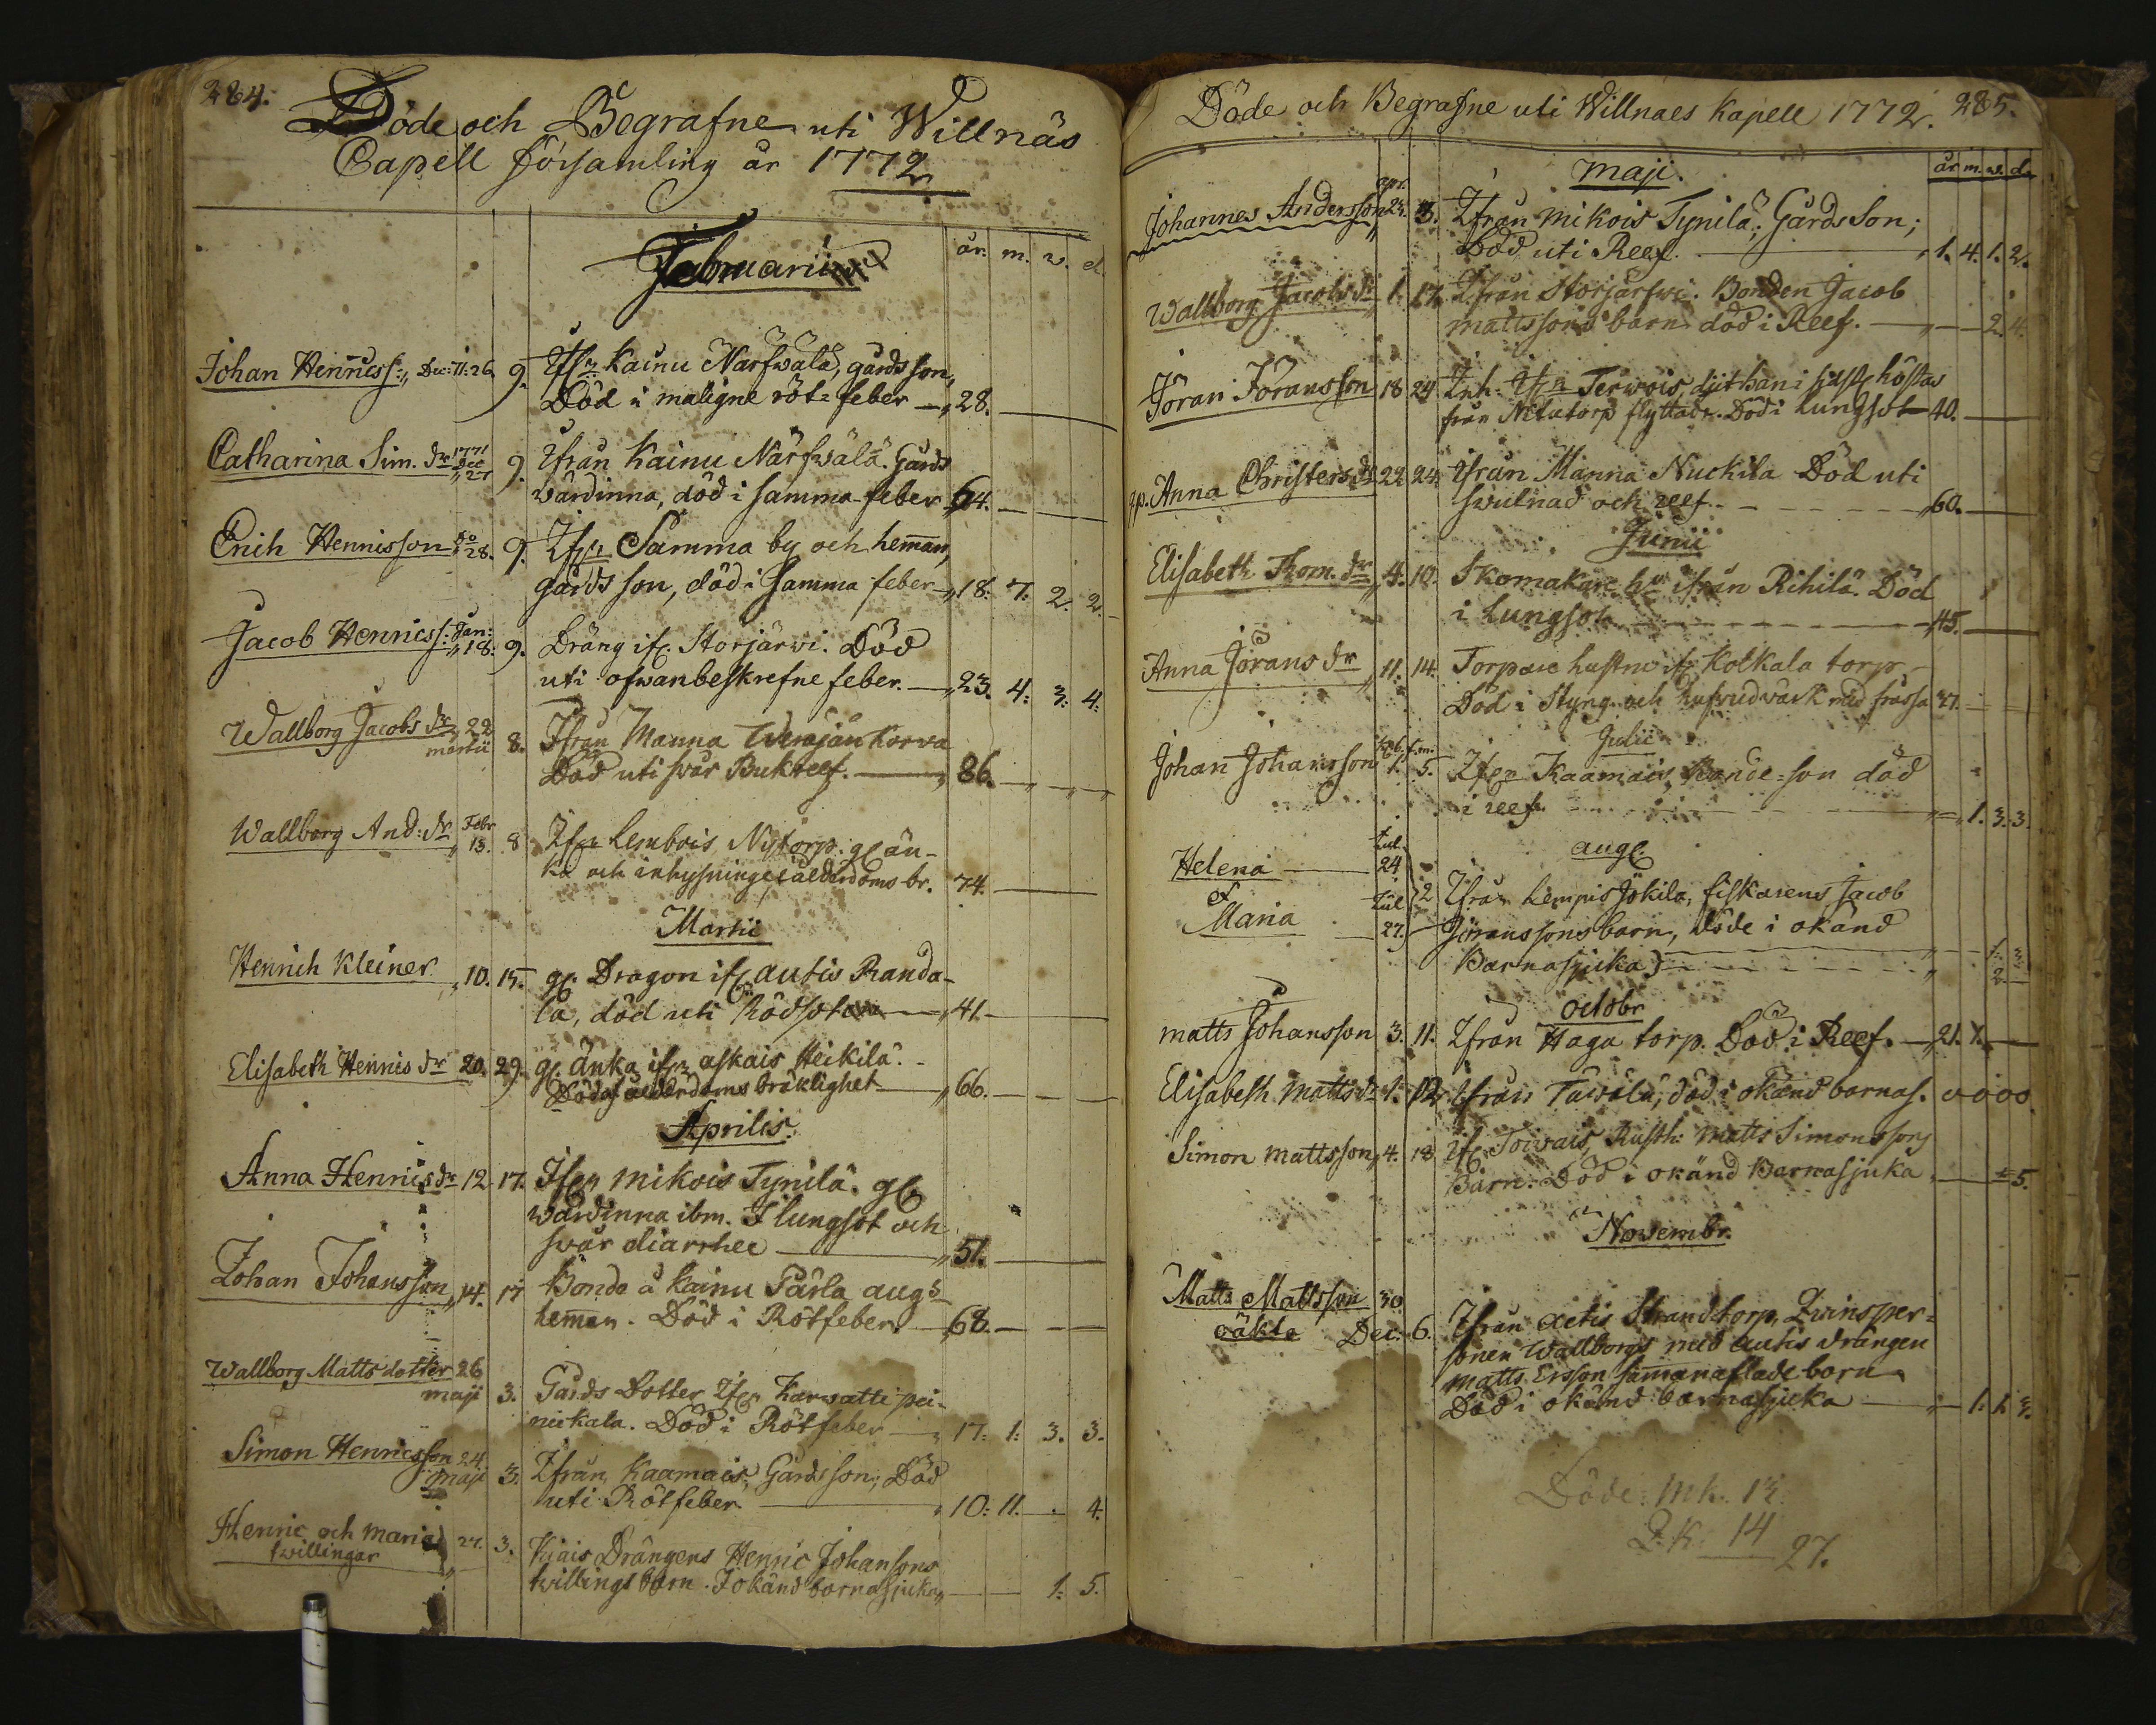 284.
Döde och Begrafne uti Willnäs
Capell församling år 1772
Februarii
år. m. v. d.
Johan Henricss: Dec: 11: 26. 9. Ifrn Kainu Närfwälä, gårds son,
Död i maligne röt-feber 28.
Catharina Sim. dr 1771 Dec 27 9. Ifrån Kainu Närfwälä. Gårds
wärdinna, död i samma feber 64.
Erich Henrisson do 28. 9. Ifrn Samma by och hemman,
gårds son, död i samma feber 18: 7. 2. 2.
Jacob Henricss: Jan: 18. 9. Dräng ifr. Storjärwi. Död
uti ofwanbeskrefne feber. 23. 4: 3: 4:
Wallborg Jacobs dr 22 martii 8. Ifrån Manna Korwa
Död uti swår Bukreef. 86.
Wallborg And: dr Febr 13. 8 Ifrn Lembois Nytorp. gl än-
ka och inhysninge, ålderdoms br. 74.
Martii
Henrich Kleiner 10. 15. gl. Dragon ifr autis Randa-
la, död uti Rödsoten 41.
Elisabeth Hennis dr 20. 29. gl. änka ifrn askais Heikilä.
Död af ålderdoms bräklighet 66.
Aprilis.
Anna Henrisdr 12. 17. Ifrn Mikois Tynilä. gl.
wärdinna ibm. I lungsot och
swår diarrhee 51.
Johan Johansson 14. 17 Bonde å Kainu Pärla augs
hemman. Död i Rötfeber. 68.
Wallborg Matts dotter 26 maji 3. Gårds Dotter Ifrn Karwatti pei-
nickala. Död i Rötfeber 17: 1: 3. 3.
Simon Henricsson 24 maji 3. Ifrån Kaamais, Gårds son; Död
uti Rötfeber. 10: 11. 4.
Henric och Maria 27. 3. Drängens Henric Johansons
twillingar
twillings barn. I okänd barnasjuka 1: 5.
Döde och Begrafne uti Willnaes Kapell 1772. 285.
maji.
år m. w. d.
Johannes Andersson apr. 24. 3. Ifrån mikois Tynilä, Gårds Son;
Död uti Reef. 1. 4. 1. 2.
Wallborg Jacobs dr 1. 17. Ifrån Storjärfwi. Bonden Jacob
mattssons barn död i Reef. 2. 4.
Jöran Jöransson 18 24 Inh. Ifrn Terwois, dit han i sidste höstas
från torp flyttade. Död i Lungsot 40.
Anna Christersdr 22 24. Ifrån Manna Nuckila Död uti
swulnad och reef. 60.
Junii
Elisabeth Thom. dr 4. 10. Skomakare hu ifrån Rihilä. Död
i Lungsot 45.
Anna Jörans dr 11. 14. Torpare hustru ifr Kolkala torp
Död i Styng och hufwudwärk med frossa 37.
Julii
Johan Johansson 1. 5. Ifrn Kaamais, Bonde-son död
i reef. 1. 3. 3.
aug.
Helena Jul. 24
et 2 Ifrån Lempis Jökila, fiskarens Jacob
Maria Jul. 27. Göranssons barn, döde i okänd
Barnasjuka 1: 3
2
octobr
matts Johansson 3. 11. Ifrån Haga torp. Död i Reef. 21. 7.
Elisabeth Matts dr 12 Ifrån Tawola, död i okänd barnas. 0 0 0 0
Simon mattsson 4. 18 Ifr. Toiwais, Rusth: Matts Simonssons
Barn. Död i okänd Barnasjuka 5.
Novembr.
Matts Mattsson 30
oäkta Dec. 6. Ifrån aetis Strandtorp, Qwinsper-
sonen Wallborgs med autis drängen
Matts Ersson samanaflade barn
Död i okänd barnasjuka 1. 1. 3.
Döde: Mk. 13.
Q.K. 14
27.